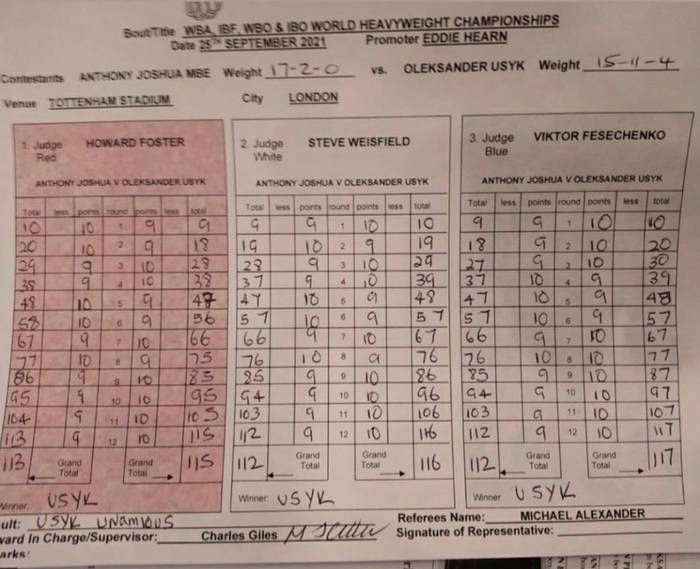 Bout Title WBA, IBF, WBO & IBO WORLD HEAVYWEIGHT CHAMPIONSHIPS
Date 25TH SEPTEMBER 2021 Promoter EDDIE HEARN
Contestants ANTHONY JOSHUA MBE Weight 17-2-0 vs. OLEKSANDER USYK Weight 15-11-4
Venue TOTTENHAM STADIUM City LONDON
1. Judge HOWARD FOSTER
Red
ANTHONY JOSHUA V OLEKSANDER USYK
Total less points round points less total
10 10 1 9 9
20 10 2 9 18
29 9 3 10 28
38 9 4 10 38
48 10 5 9 47
58 10 6 9 56
67 9 7 10 66
77 10 8 9 75
86 9 9 10 85
95 9 10 10 95
104 9 11 10 105
113 9 12 10 115
113 Grand Total Grand Total 115
Winner USYK
2. Judge STEVE WEISFIELD
White
ANTHONY JOSHUA V OLEKSANDER USYK
Total less points round points less total
9 9 1 10 10
19 10 2 9 19
28 9 3 10 29
37 9 4 10 39
47 10 5 9 48
57 10 6 9 57
66 9 7 10 67
76 10 8 9 76
85 9 9 10 86
94 9 10 10 96
103 9 11 10 106
112 9 12 10 116
112 Grand Total Grand Total 116
Winner USYK
3. Judge VIKTOR FESECHENKO
Blue
ANTHONY JOSHUA V OLEKSANDER USYK
Total less points round points less total
9 9 1 10 10
18 9 2 10 20
27 9 3 10 30
37 10 4 9 39
47 10 5 9 48
57 10 6 9 57
66 9 7 10 67
76 10 8 10 77
85 9 9 10 87
94 9 10 10 97
103 9 11 10 107
112 9 12 10 117
112 Grand Total Grand Total 117
Winner USYK
ult: USYK UNAMIOUS
Referees Name: MICHAEL ALEXANDER
ward In Charge/Supervisor: Charles Giles
Signature of Representative:
arks: